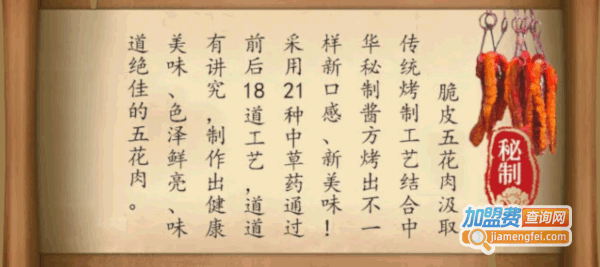 脆皮五花肉汲取
传统烤制工艺结合中
华秘制酱方烤出不一
样新口感、新美味！
采用21种中草药通过
前后18道工艺，道道
有讲究，制作出健康
美味、色泽鲜亮、味
道绝佳的五花肉。
秘制
加盟费查询网
jiamengfei.com